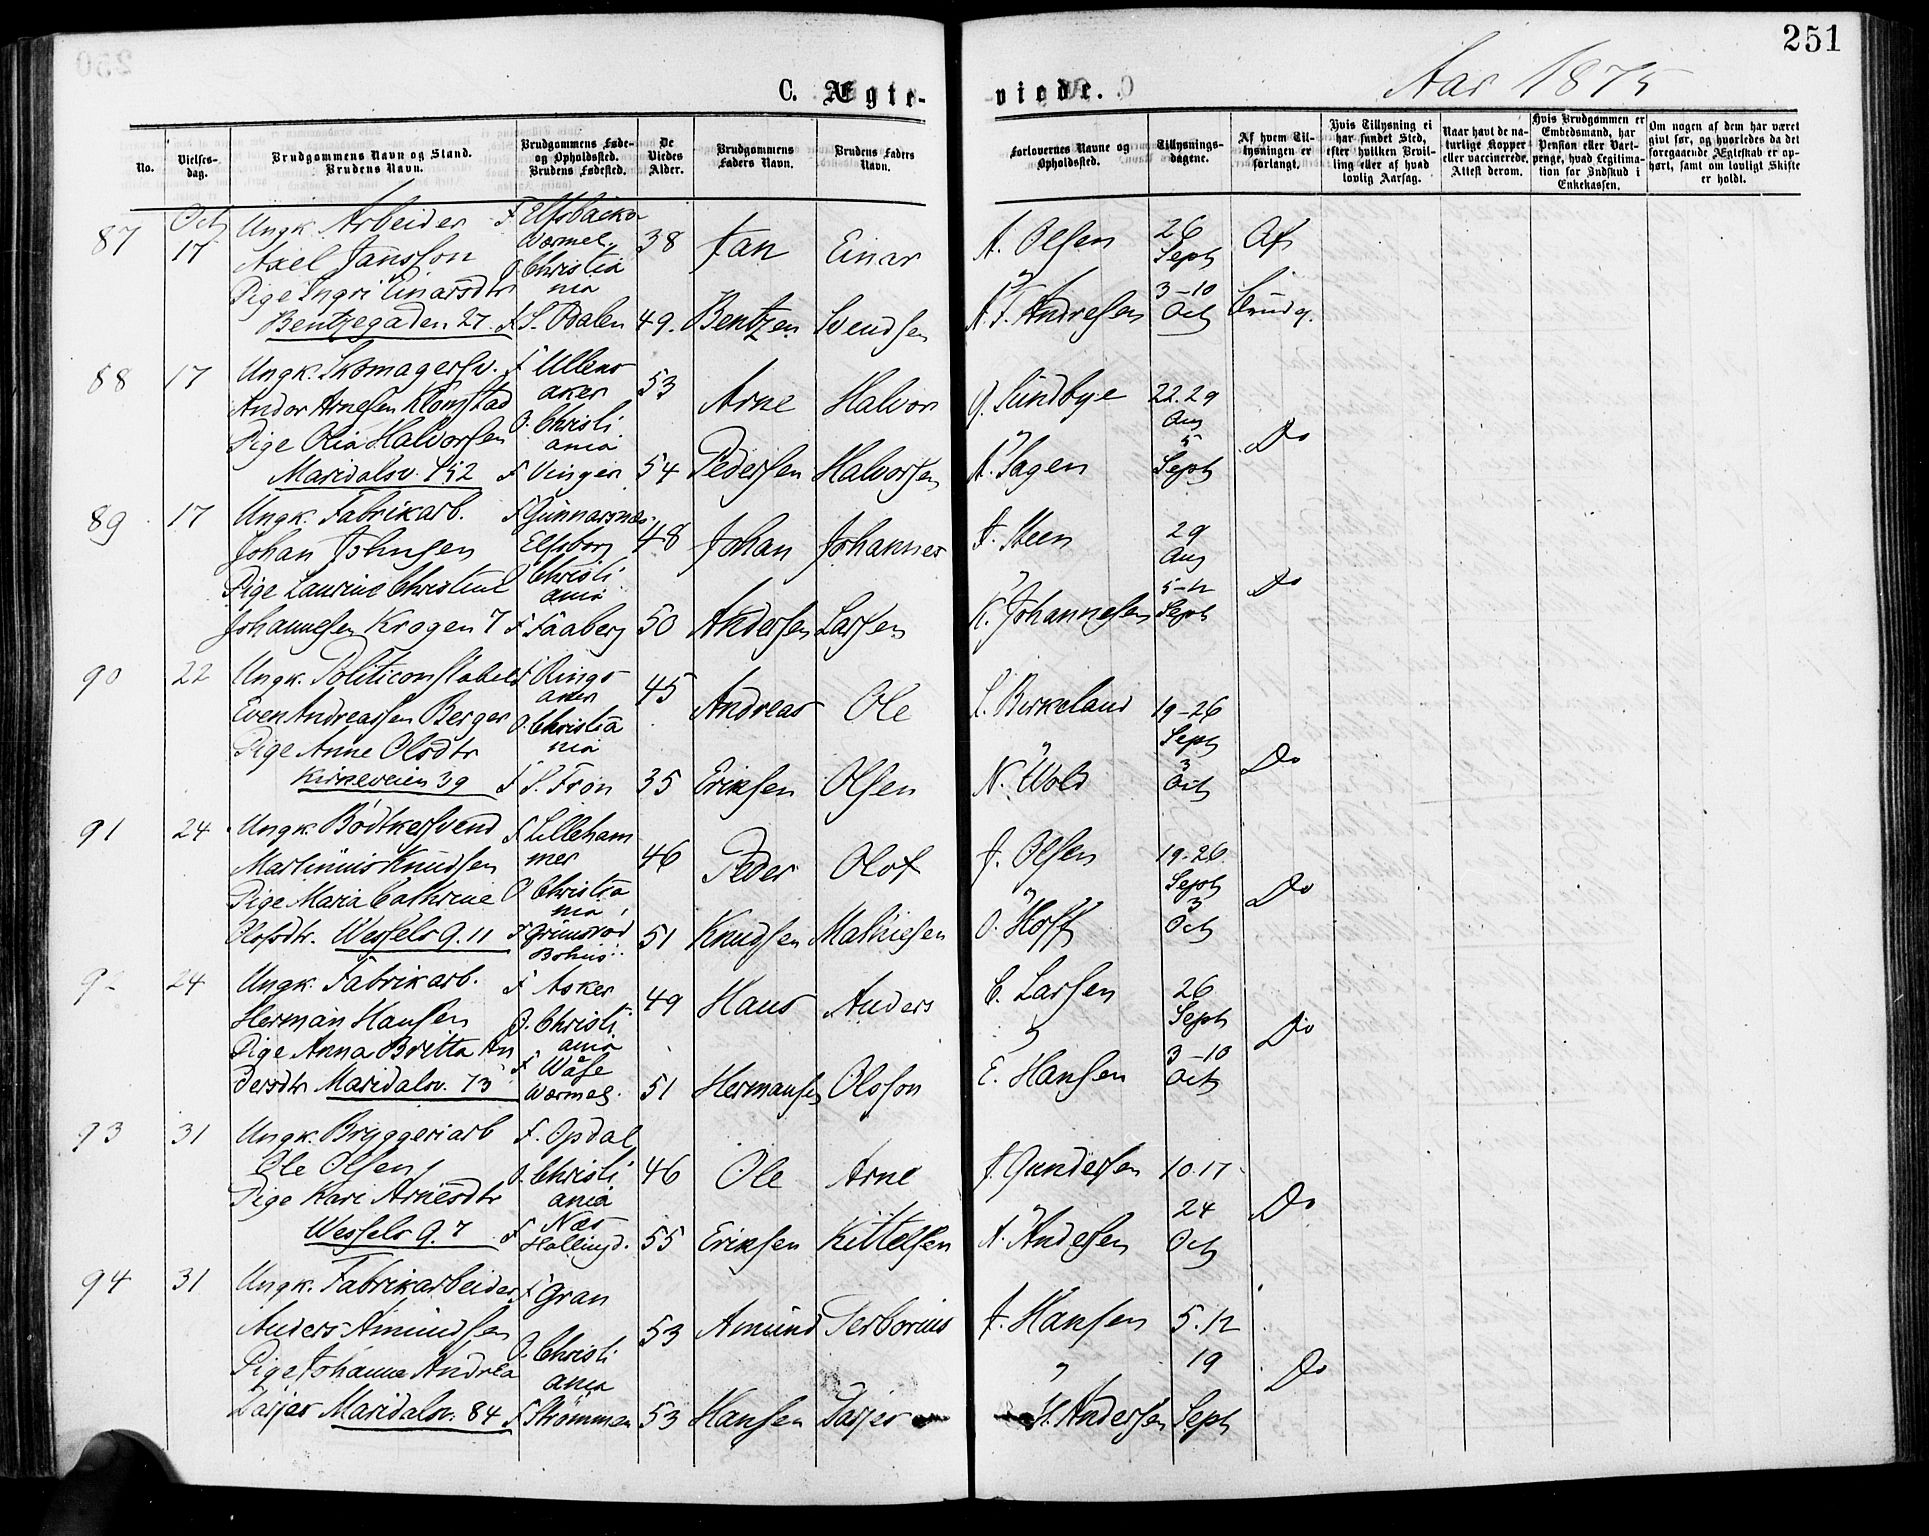 251
C. Ægte-
viede.
Aar 1875
No.
Vielses-
dag.
Brudgommens Navn og Stand.
Brudens Navn.
Brudgommens Føde-
og Opholdssted.
Brudens Fødested.
De
Viedes
Alder.
Brudgommens
Faders Navn.
Brudens Faders
Navn.
Forlovernes Navne og
Opholdssted.
Tillysnings-
dagene.
Af hvem Til-
lysningen er
forlangt.
Hvis Tillysning ei
har fundet Sted,
efter hvilken Bevil-
ling eller af hvad
lovlig Aarsag.
Naar havt de na-
turlige Kopper
eller vaccinerede.
Attest derom.
Hvis Brudgommen er
Embedsmand, har
Pension eller Vart-
penge, hvad Legitima-
tion for Indskud i
Enkekassen.
Om nogen af dem har været
gift før, og hvorledes da det
foregaaende Ægteskab er op-
hørt, samt om lovligt Skifte
er holdt.
87 Oct 17
Ungk. Arbeider
Axel Jansson
Pige Ingri Einarsdtr
Bentzegaden 27.
F Elfsbacka
Wermel.
O Christia
nia
F S. Odalen
38
49.
Jan
Bentzen
Einar
Svendsen
A. Olsen
"
A. F. Andresen
26
Sept
3-10
Oct
Af
Brudg.
88 17
Ungk. Skomagersv.
Andor Arnesen Klomstad
Pige Olia Halvorsen
Maridalsv. 152
F Ullens
aker
O. Christi
ania
F Vinger
53
54
Arne
Pedersen
Halvor
Halvorsen
G. Sundbye
"
A. Hagen
22.29
Aug
5
Sept
Do
89 17
Ungk. Fabrikarb.
Johan Johnsen
Pige Laurine Christine
Johannesen Krogen 7
F Gunnarsnes
Elfsborg
O Christi
ania
F Faaberg
48
50
Johan
Andersen
Johannes
Larsen
A. Steen
"
K. Johannesen
29
Aug
5-12
Sept
Do
90 22
Ungk. Politiconstabel
Even Andreassen Berger
Pige Anne Olsdtr
Kirkeveien 39
F Rings
aker
O Christia
nia
F S. Fron
45
35
Andreas
Eriksen
Ole
Olsen
L. Birkeland
"
N. Wold
19-26
Sept
3
Oct
Do
91 24
Ungk. Bødtkersvend
Martinius Knudsen
Pige Maria Cathrine
Olofsdtr. Wessels G. 11
F Lilleham
mer
O Christia
nia
F Grinsrød
Bohus
46
51
Peder
Knudsen
Olof
Mathiesen
J. Olsen
"
O. Hoff
19-26
Sept
3
Oct
Do
92 24
Ungk. Fabrikarb.
Herman Hansen
Pige Anna Britta An
dersdtr Maridalsv. 73
F Asker
O. Christi
ania
F Wåse
Wermel.
49
51
Hans
Hermansen
Anders
Olsson
C. Larsen
"
E. Hansen
26
Sept
3-10
Oct
Do
93 31
Ungk. Bryggeriarb
Ole Olsen
Pige Kari Arnesdtr
Wessels G. 7
F. Opdal
O. Christi
ania
F Næs
Hallingd.
46
55
Ole
Eriksen
Arne
Kittelsen
J. Gundersen
"
A. Andersen
10.17
24
Oct
Do
94 31
Ungk. Fabrikarbeider
Anders Amundsen
Pige Johanne Andrea
Larjer Maridalsv. 84
F Gran
O. Christi
ania
F Strømmen
53
53
Amund
Hansen
Terborius
Larjer
A. Hansen
"
H. Andersen
5.12
19
Sept
Do